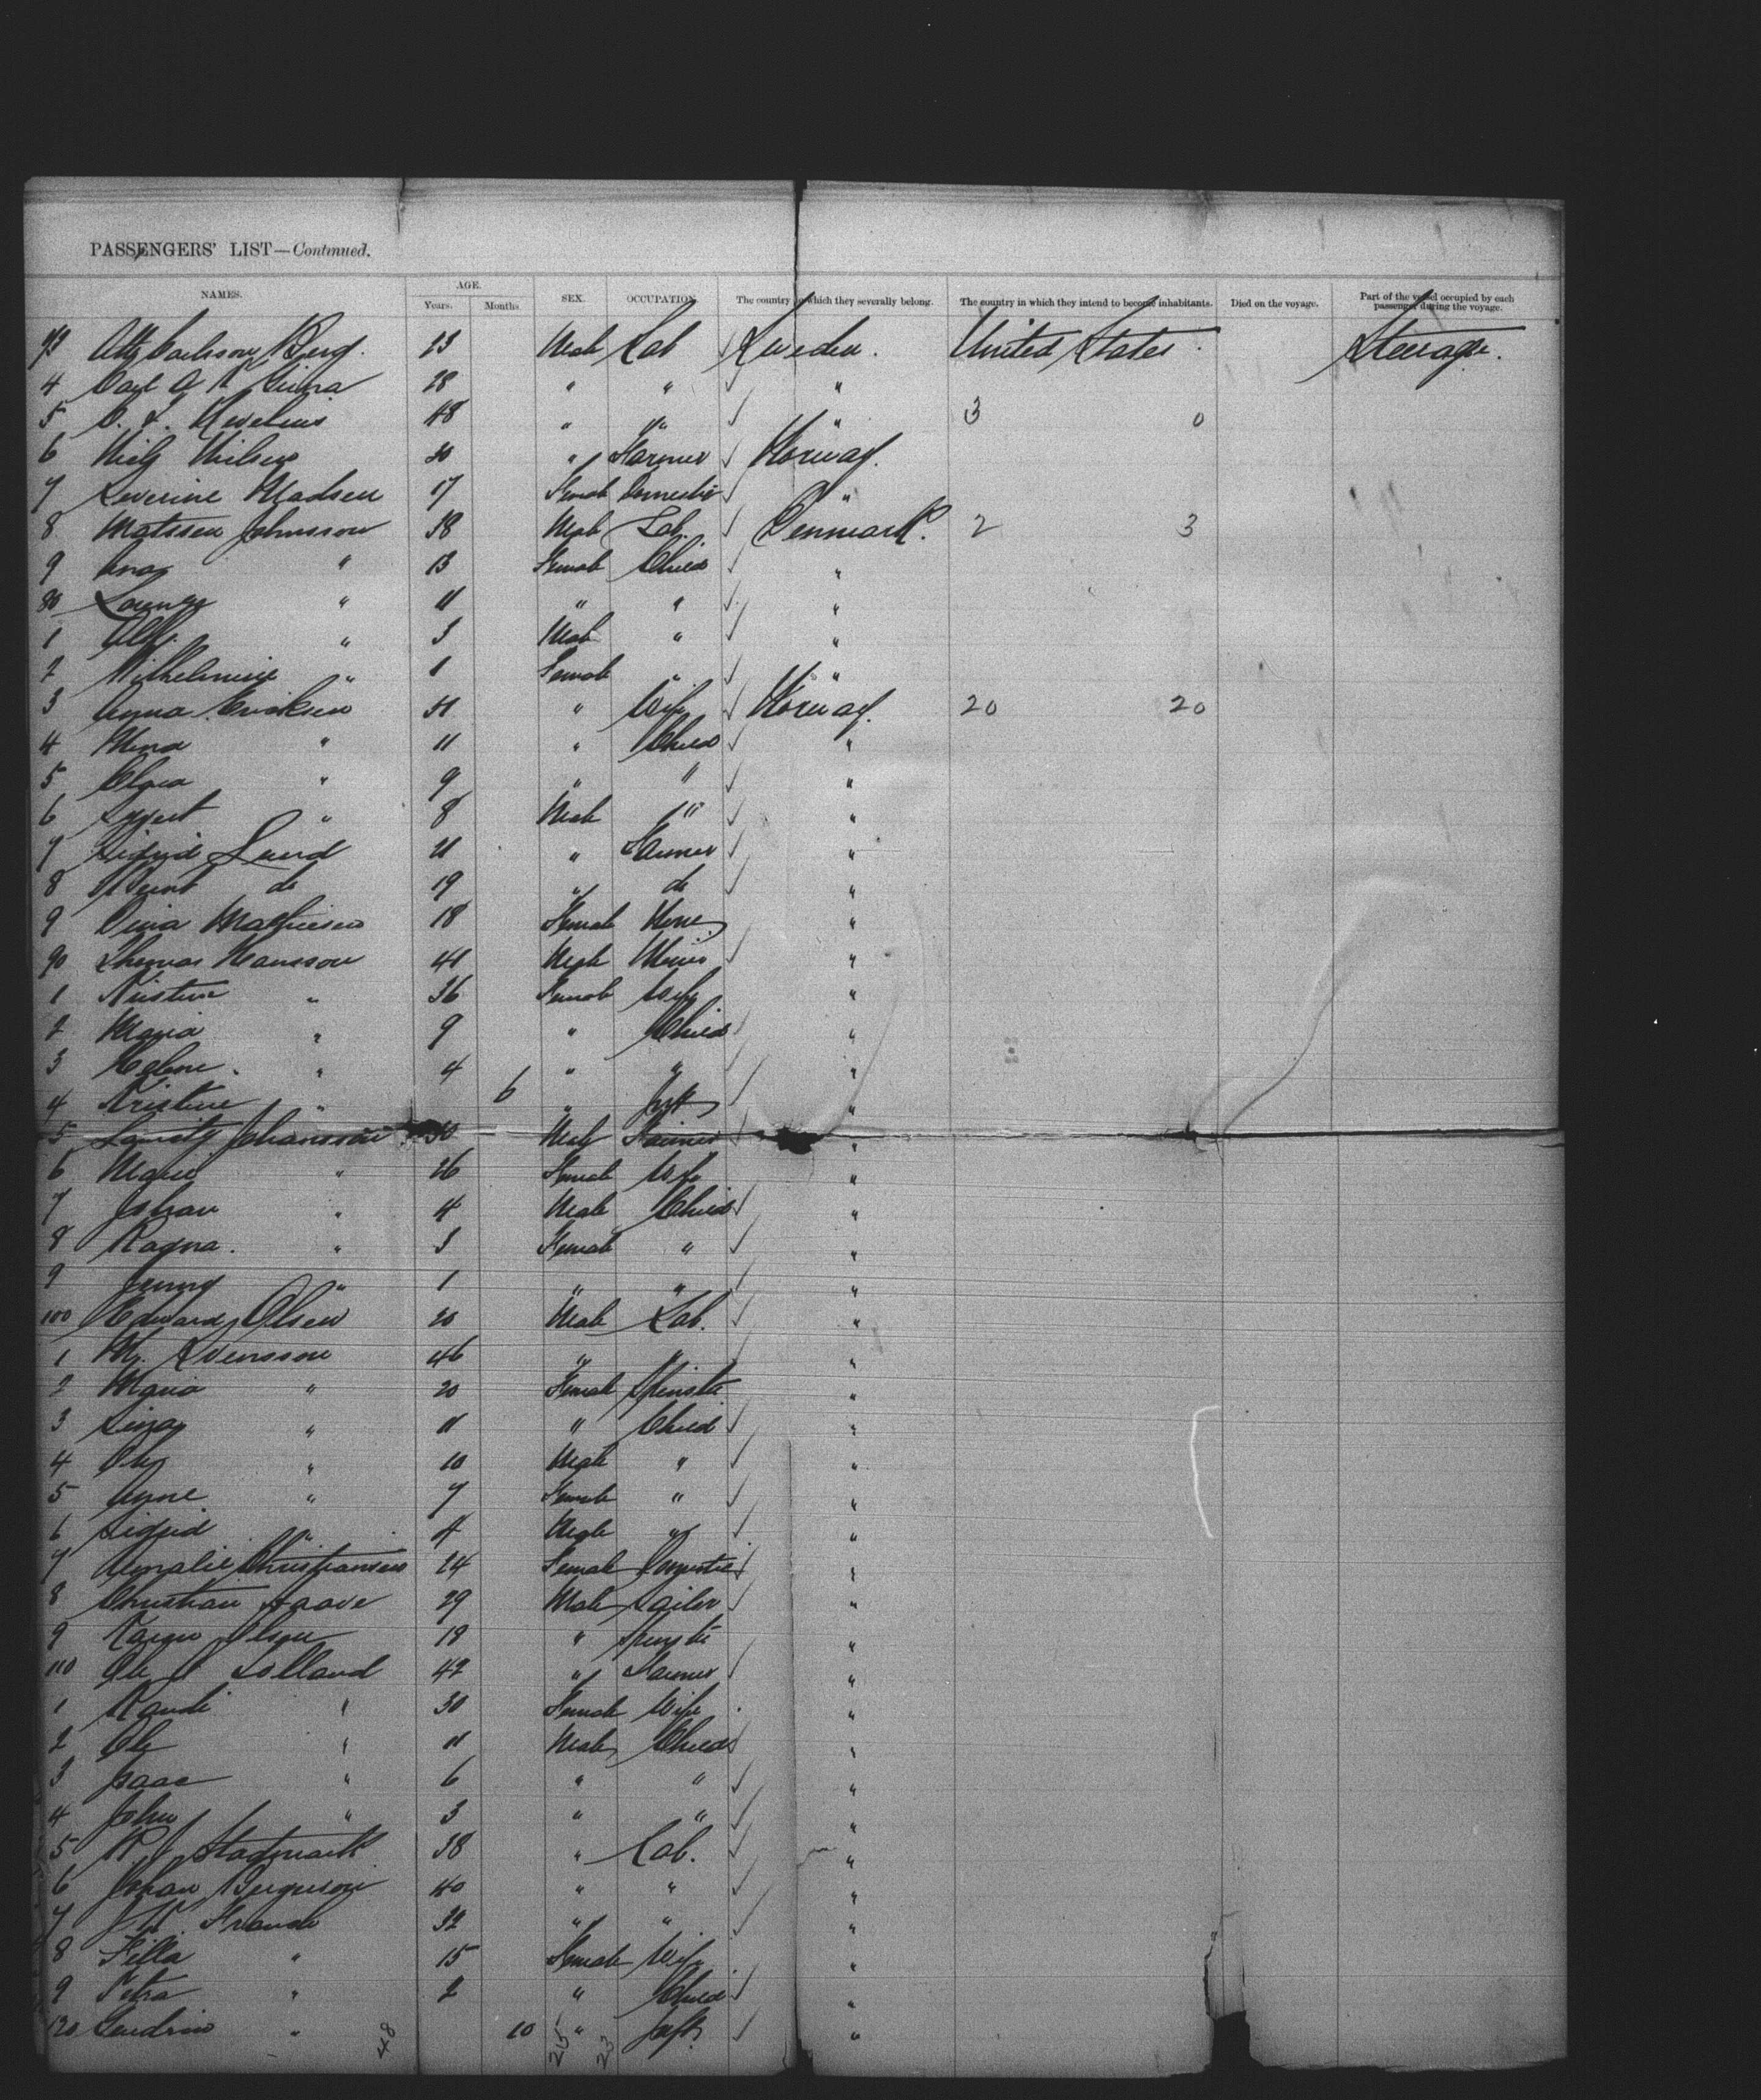 PASSENGERS' LIST—Continued.
NAMES. AGE. Years. Months. SEX. OCCUPATION. The country to which they severally belong. The country in which they intend to become inhabitants. Died on the voyage. Part of the vessel occupied by each passenger during the voyage.
73 Carlsson Berg. 23 Male Lab Sweden. United States. Steerage.
4 Carl 28 " " "
5 48 " " " 3 0
6 Niels Nilsen 30 " Farmer Norway.
7 Severine Madsen 17 Female Domestic "
8 Matssen Johnsson 38 Male Lab. Denmark. 2 3
9 Ana " 13 Female Child "
80 " 11 " " "
1 " 3 Male " "
2 Wilhelmine " 1 Female " "
3 Anna Eriksen 31 " Wife Norway. 20 20
4 " 11 " Child "
5 " 9 " " "
6 " 8 Male " "
7 Sigrid Lund 21 " Farmer "
8 do 19 " do "
9 Dina Mathiesen 18 Female None "
90 Thomas Hansson 41 Male "
1 " 36 Female Wife "
2 Maria " 9 " Child "
3 " 4 " " "
4 Kristine " 6 " Inft "
5 Johansson 30 Male Farmer "
6 Marie " 26 Female Wife "
7 Johan " 4 Male Child "
8 Ragna. " 3 Female " "
9 Jenny " 1 " " "
100 Edward Olsen 20 Male Lab. "
1 Svensson 46 " " "
2 Maria " 20 Female Spinster "
3 " 11 " Child "
4 Ole " 10 Male " "
5 Anne " 7 Female " "
6 Sigrid " 4 Male " "
7 Amalie Christiansen 24 Female Domestic "
8 Christian Haave 29 Male Sailor "
9 Olsen 19 " Spinster "
110 Ole Solland 42 " Farmer "
1 Randi " 30 Female Wife "
2 Ole " 11 Male Child "
3 Isaac " 6 " " "
4 John " 3 " " "
5 38 " Lab. "
6 Johan 40 " " "
7 32 " " "
8 " 15 Female Wife "
9 Petra " 2 " Child "
120 " 10 " Inft "
48 25 23